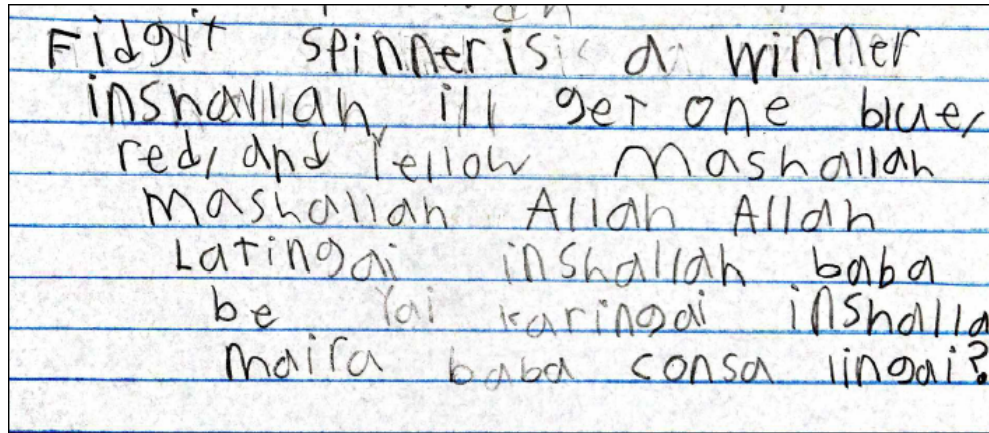 Fidgit spinner is a winner
inshalllah, ill get one blue,
red, and Yellow Mashallah
Mashallah Allah Allah
Latingai inshallah baba
be lai karingai inshalla
maira baba consa lingai?